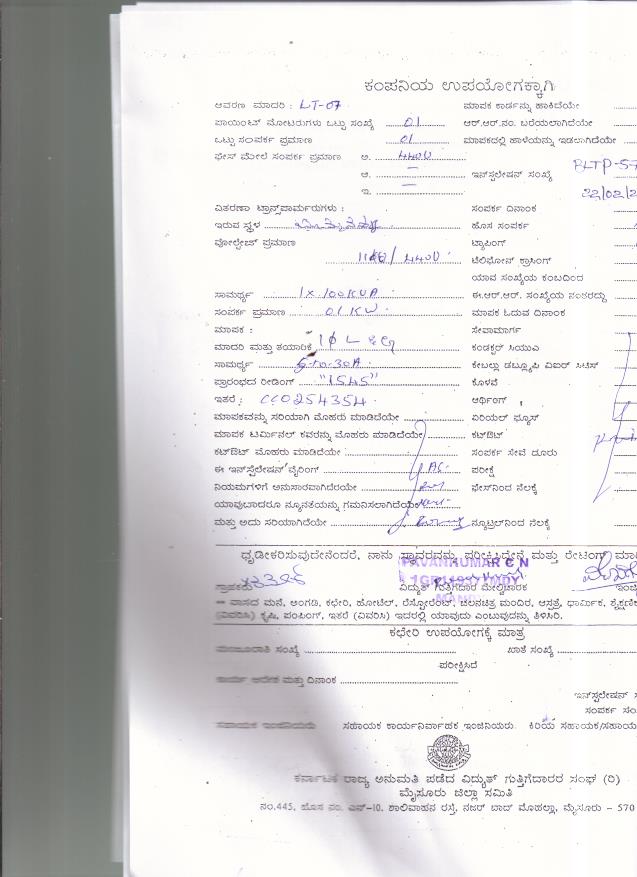 ಕಂಪನಿಯ ಉಪಯೋಗಕ್ಕಾಗಿ
ಆವರಣ ಮಾದರಿ : LT-07 ಮಾಪಕ ಕಾರ್ಡನ್ನು ಹಾಕಿದೆಯೇ
ಪಾಯಿಂಟ್ ಮೋಟರುಗಳು ಒಟ್ಟು ಸಂಖ್ಯೆ 01 ಆರ್.ಆರ್.ನಂ. ಬರೆಯಲಾಗಿದೆಯೇ
ಒಟ್ಟು ಸಂಪರ್ಕ ಪ್ರಮಾಣ 01 ಮಾಪಕದಲ್ಲಿ ಹಾಳೆಯನ್ನು ಇಡಲಾಗಿದೆಯೇ
ಫೇಸ್ ಮೇಲೆ ಸಂಪರ್ಕ ಪ್ರಮಾಣ ಅ. 440V
ಆ. — ಇನ್‌ಸ್ಟಲೇಷನ್ ಸಂಖ್ಯೆ BLTP-57
ಇ. — 22/02/2
ವಿತರಣಾ ಟ್ರಾನ್ಸ್‌ಪಾರ್ಮರುಗಳು : ಸಂಪರ್ಕ ದಿನಾಂಕ
ಇರುವ ಸ್ಥಳ ಹೊಸ ಸಂಪರ್ಕ
ವೋಲ್ಟೇಜ್ ಪ್ರಮಾಣ ಟ್ಯಾಪಿಂಗ್
/ 440V ಟೆಲಿಫೋನ್ ಕ್ರಾಸಿಂಗ್
ಯಾವ ಸಂಖ್ಯೆಯ ಕಂಬದಿಂದ
ಸಾಮರ್ಥ್ಯ 1x100KVA ಈ.ಆರ್.ಆರ್. ಸಂಖ್ಯೆಯ ನಂತರದ್ದು
ಸಂಪರ್ಕ ಪ್ರಮಾಣ 01 KW ಮಾಪಕ ಓದುವ ದಿನಾಂಕ
ಮಾಪಕ : ಸೇವಾಮಾರ್ಗ
ಮಾದರಿ ಮತ್ತು ತಯಾರಿಕೆ 1ϕ L & G ಕಂಡಕ್ಟರ್ ಸಿಯುಎ
ಸಾಮರ್ಥ್ಯ 5-10-30A ಕೇಬಲ್ಲು ಡಬ್ಲ್ಯೂಪಿ ಏಐರ್ ಸಿಟಿಸ್
ಪ್ರಾರಂಭದ ರೀಡಿಂಗ್ "1545" ಕೊಳವೆ
ಇತರೆ : CC0254354 ಆರ್ಥಿಂಗ್ :
ಮಾಪಕವನ್ನು ಸರಿಯಾಗಿ ಮೊಹರು ಮಾಡಿದೆಯೇ ಏರಿಯಲ್ ಫ್ಯೂಸ್
ಮಾಪಕ ಟರ್ಮಿನಲ್ ಕವರನ್ನು ಮೊಹರು ಮಾಡಿದೆಯೇ ಕಟ್‌ಔಟ್
ಕಟ್‌ಔಟ್ ಮೊಹರು ಮಾಡಿದೆಯೇ ಸಂಪರ್ಕ ಸೇವೆ ದೂರು
ಈ ಇನ್‌ಸ್ಟಲೇಷನ್ ವೈರಿಂಗ್ ಪರೀಕ್ಷೆ
ನಿಯಮಗಳಿಗೆ ಅನುಸಾರವಾಗಿದೆಯೇ ಫೇಸ್‌ನಿಂದ ನೆಲಕ್ಕೆ
ಯಾವುದಾದರೂ ನ್ಯೂನತೆಯನ್ನು ಗಮನಿಸಲಾಗಿದೆಯೇ
ಮತ್ತು ಅದು ಸರಿಯಾಗಿದೆಯೇ ನ್ಯೂಟ್ರಲ್‌ನಿಂದ ನೆಲಕ್ಕೆ
ಧೃಡೀಕರಿಸುವುದೇನೆಂದರೆ, ನಾನು ಸ್ಥಾವರವನ್ನು ಪರೀಕ್ಷಿಸಿದ್ದೇನೆ ಮತ್ತು ರೇಟಿಂಗ್
PAVANKUMAR C N
ಗ್ರಾಹಕರು ವಿದ್ಯುತ್ ಗುತ್ತಿಗೆದಾರ ಮೇಲ್ವಿಚಾರಕ
** ವಾಸದ ಮನೆ, ಅಂಗಡಿ, ಕಛೇರಿ, ಹೋಟೆಲ್, ರೆಸ್ಟೋರೆಂಟ್, ಚಲನಚಿತ್ರ ಮಂದಿರ, ಆಸ್ಪತ್ರೆ, ಧಾರ್ಮಿಕ,
(ವಿವರಿಸಿ) ಕೃಷಿ, ಪಂಪಿಂಗ್, ಇತರೆ (ವಿವರಿಸಿ) ಇದರಲ್ಲಿ ಯಾವುದು ಎಂಬುವುದನ್ನು ತಿಳಿಸಿರಿ.
ಕಛೇರಿ ಉಪಯೋಗಕ್ಕೆ ಮಾತ್ರ
ಮಂಜೂರಾತಿ ಸಂಖ್ಯೆ ಖಾತೆ ಸಂಖ್ಯೆ
ಪರೀಕ್ಷಿಸಿದೆ
ಕಾರ್ಯ ಆದೇಶ ಮತ್ತು ದಿನಾಂಕ
ಇನ್‌ಸ್ಟಲೇಷನ್
ಸಂಪರ್ಕ
ಸಹಾಯಕ ಇಂಜಿನಿಯರು ಸಹಾಯಕ ಕಾರ್ಯನಿರ್ವಾಹಕ ಇಂಜಿನಿಯರು ಕಿರಿಯ ಸಹಾಯಕ/ಸಹಾಯ
ಕರ್ನಾಟಕ ರಾಜ್ಯ ಅನುಮತಿ ಪಡೆದ ವಿದ್ಯುತ್ ಗುತ್ತಿಗೆದಾರರ ಸಂಘ (ರಿ)
ಮೈಸೂರು ಜಿಲ್ಲಾ ಸಮಿತಿ
ನಂ.445, ಹೊಸ ನಂ. ಎನ್-10, ಶಾಲಿವಾಹನ ರಸ್ತೆ, ನಜರ್ ಬಾದ್ ಮೊಹಲ್ಲಾ, ಮೈಸೂರು - 570